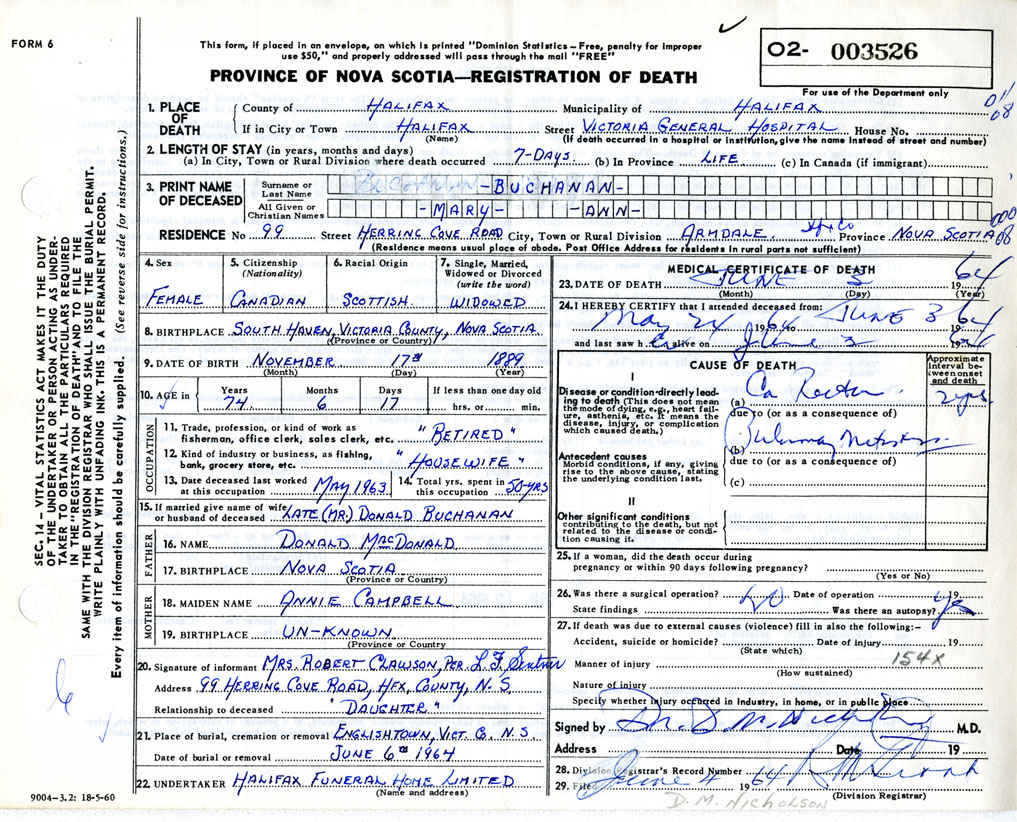 FORM 6
This form, if placed in an envelope, on which is printed "Dominion Statistics – Free, penalty for improper
use $50," and properly addressed will pass through the mail "FREE"
O2- 003526
For use of the Department only
PROVINCE OF NOVA SCOTIA—REGISTRATION OF DEATH
011
08
1. PLACE OF DEATH
County of HALIFAX Municipality of HALIFAX
If in City or Town HALIFAX Street VICTORIA GENERAL HOSPITAL House No.
(Name) (If death occurred in a hospital or institution, give the name instead of street and number)
2. LENGTH OF STAY (in years, months and days)
(a) In City, Town or Rural Division where death occurred 7-DAYS (b) In Province LIFE (c) In Canada (if immigrant)
3. PRINT NAME OF DECEASED
Surname or Last Name -BUCHANAN-
All Given or Christian Names -MARY- -ANN-
000
08
RESIDENCE No 99 Street HERRING COVE ROAD City, Town or Rural Division ARMDALE Hfx Co Province NOVA SCOTIA
(Residence means usual place of abode. Post Office Address for residents in rural parts not sufficient)
4. Sex
FEMALE
5. Citizenship (Nationality)
CANADIAN
6. Racial Origin
SCOTTISH
7. Single, Married, Widowed or Divorced (write the word)
WIDOWED
8. BIRTHPLACE SOUTH HAVEN, VICTORIA COUNTY, NOVA SCOTIA
(Province or Country)
9. DATE OF BIRTH NOVEMBER 17th 1889
(Month) (Day) (Year)
10. AGE in
Years 74
Months 6
Days 17
If less than one day old
hrs. or min.
OCCUPATION
11. Trade, profession, or kind of work as
fisherman, office clerk, sales clerk, etc. "RETIRED"
12. Kind of industry or business, as fishing,
bank, grocery store, etc. "HOUSEWIFE"
13. Date deceased last worked
at this occupation MAY 1963
14. Total yrs. spent in
this occupation 50 YRS
15. If married give name of wife
or husband of deceased LATE (MR.) DONALD BUCHANAN
FATHER
16. NAME DONALD MACDONALD
17. BIRTHPLACE NOVA SCOTIA
(Province or Country)
MOTHER
18. MAIDEN NAME ANNIE CAMPBELL
19. BIRTHPLACE UN-KNOWN
(Province or Country
20. Signature of informant MRS. ROBERT CLAWSON, PER. L. F.
Address 99 HERRING COVE ROAD, HFX, COUNTY, N. S.
Relationship to deceased "DAUGHTER"
21. Place of burial, cremation or removal ENGLISHTOWN, VICT. Co. N. S.
Date of burial or removal JUNE 6th 1964
22. UNDERTAKER HALIFAX FUNERAL HOME LIMITED
(Name and address)
MEDICAL CERTIFICATE OF DEATH
23. DATE OF DEATH JUNE 3 1964
(Month) (Day) (Year)
24. I HEREBY CERTIFY that I attended deceased from:
May 24 1964 to JUNE 3 1964
and last saw h er alive on June 3 1964
CAUSE OF DEATH
Approximate interval between onset and death
I
Disease or condition directly leading to death (This does not mean the mode of dying, e.g., heart failure, asthenia, etc. It means the disease, injury, or complication which caused death.)
(a) Ca Rectum 2 yrs
due to (or as a consequence of)
(b) Pulmonary
Antecedent causes
Morbid conditions, if any, giving rise to the above cause, stating the underlying condition last.
due to (or as a consequence of)
(c)
II
Other significant conditions
contributing to the death, but not related to the disease or condition causing it.
25. If a woman, did the death occur during
pregnancy or within 90 days following pregnancy?
(Yes or No)
26. Was there a surgical operation? NO Date of operation 19
State findings Was there an autopsy? yes
27. If death was due to external causes (violence) fill in also the following:–
Accident, suicide or homicide? Date of injury 19
(State which)
154X
Manner of injury
(How sustained)
Nature of injury
Specify whether injury occurred in industry, in home, or in public place
Signed by Dr. M.D.
Address Date 19
28. Division Registrar's Record Number
29. Filed June 4 1964
(Division Registrar)
D. M. NICHOLSON
SEC. 14 – VITAL STATISTICS ACT MAKES IT THE DUTY
OF THE UNDERTAKER OR PERSON ACTING AS UNDER-
TAKER TO OBTAIN ALL THE PARTICULARS REQUIRED
IN THE "REGISTRATION OF DEATH" AND TO FILE THE
SAME WITH THE DIVISION REGISTRAR WHO SHALL ISSUE THE BURIAL PERMIT.
WRITE PLAINLY WITH UNFADING INK. THIS IS A PERMANENT RECORD.
Every item of information should be carefully supplied. (See reverse side for instructions.)
9004–3.2: 18-5-60